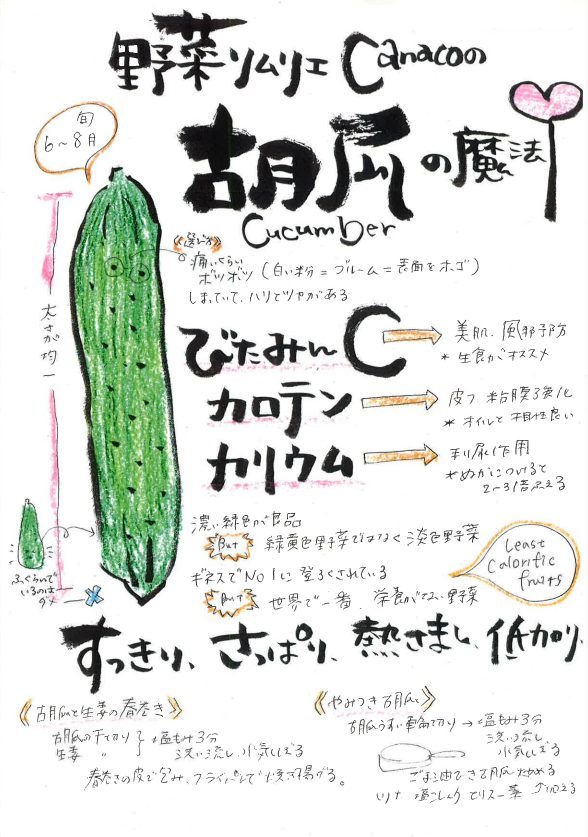 野菜ソムリエ Canacoの
胡瓜の魔法
Cucumber
旬
6〜8月
《選び方》
痛いくらい
ボツボツ (白い粉=ブルーム=表面をホゴ)
しまっていて、ハリとツヤがある
太さが均一
びたみんC → 美肌、風邪予防
* 生食がオススメ
カロテン → 皮フ 粘膜強化
* オイルと相性良い
カリウム → 利尿作用
*ぬかにつけると
2〜3倍ふえる
濃い緑色が良品
But 緑黄色野菜ではなく淡色野菜
ギネスでNo1に登ろくされている
But 世界で一番、栄養がない野菜
Least
Calorific
fruits
ふくらんで
いるのは
ダメ
すっきり、さっぱり、熱さまし、低カロリ、
《胡瓜と生姜の春巻き》
胡瓜の千切り 塩もみ3分
生姜 〃 洗い流し、水気しぼる
春巻きの皮で包み、フライパンで焼き揚げる。
《やみつき胡瓜》
胡瓜うすい輪切り → 塩もみ3分
洗い流し
水気しぼる
ごま油で胡瓜炒める
塩こしょう